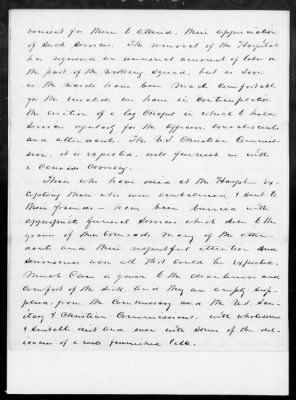 venient for them to attend, their appreciation
of such services. The removal of the Hospital
has required an unusual amount of labor on
the part of the working squad, but as soon
as the wards have been made comfortable
for the invalids, we have in contemplation
the erection of a log chapel in which to hold
services regularly for the officers, convalescents
and attendants. The U.S. Christian Commis-
sion, it is expected, will furnish us with
a canvass covering.
Those who have died at the Hospital ex-
cepting those who were embalmed, & sent to
their friends - have been buried with
appropriate funeral services which drew to the
graves of their comrades many of the atten-
dants and their respectful attention and
seriousness were all that could be expected.
Much care is given to the cleanliness and
comfort of the sick and they are amply sup-
plied, from the Commissary and the U.S. San-
itary & Christian Commissions, with wholesome
& suitable diet and even with some of the del-
icacies of a well furnished table.